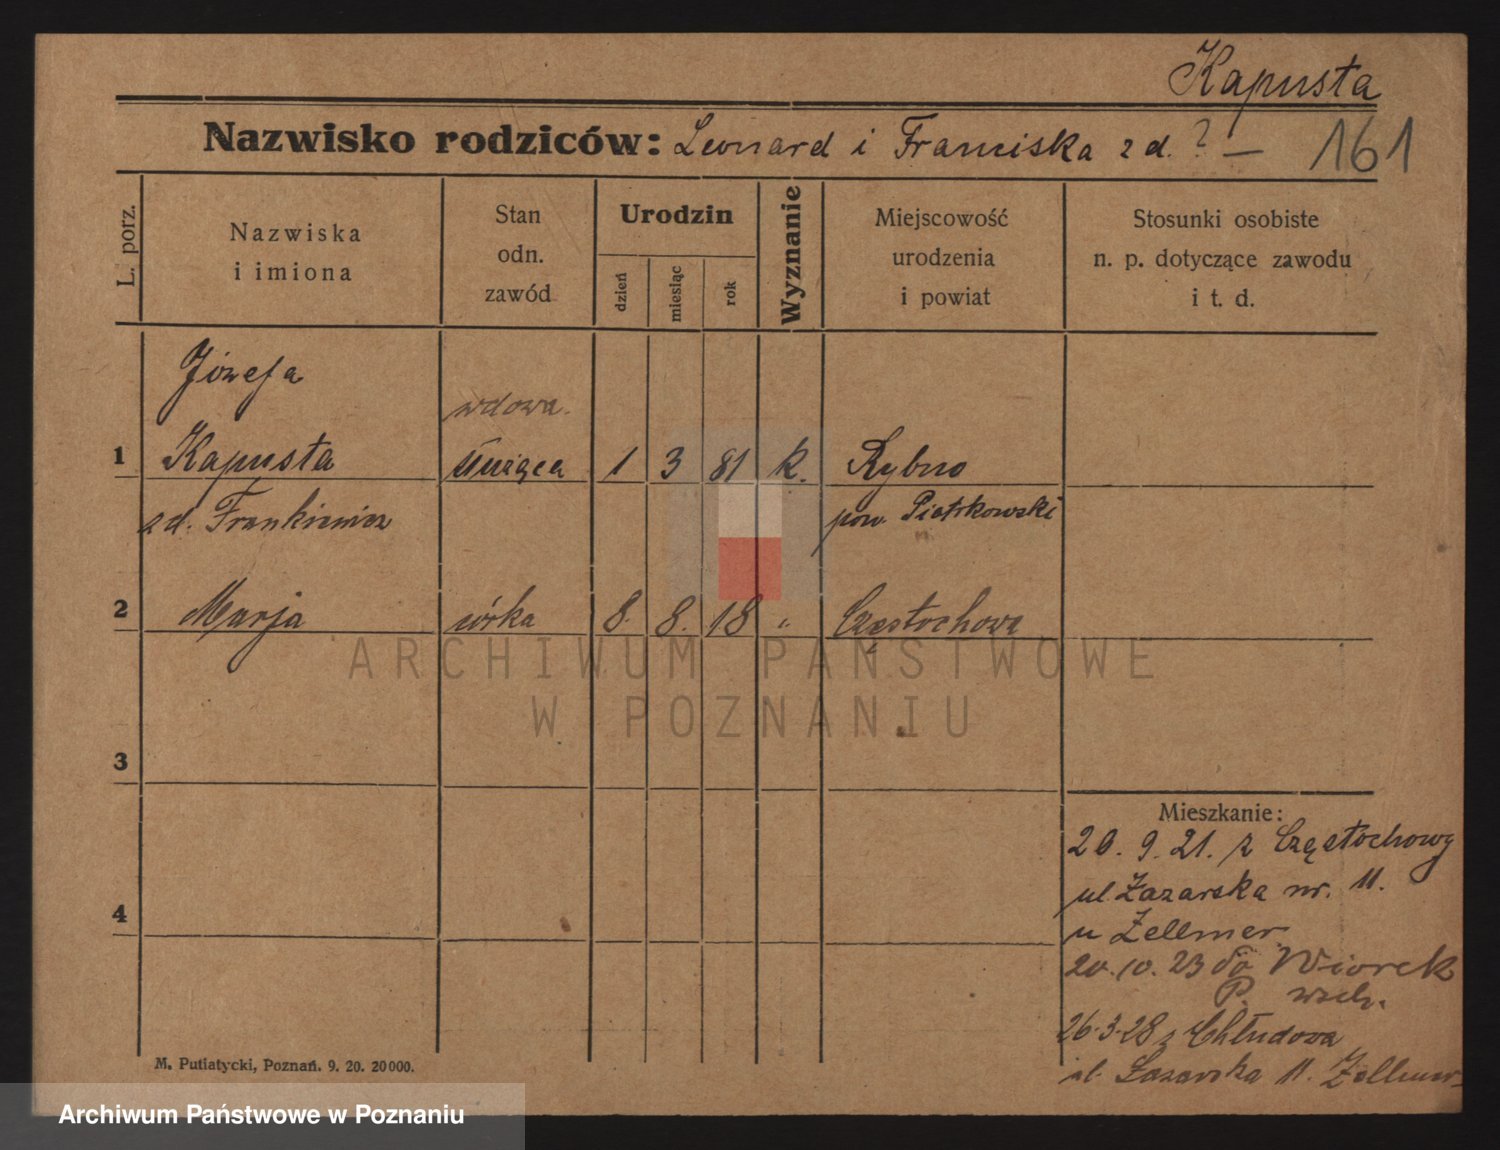 Kapusta
Nazwisko rodziców: Leonard i Franciska z d. ? — 161
L. porz.
Nazwiska
i imiona
Stan
odn.
zawód
Urodzin
dzień
miesiąc
rok
Wyznanie
Miejscowość
urodzenia
i powiat
Stosunki osobiste
n. p. dotyczące zawodu
i t. d.
Józefa
wdowa.
1 Kapusta służąca 1 3 81 k. Rybno
z d. Frankiewicz pow. Piotrkowski
2 Marja córka 8. 8. 18 „ Częstochowa
ARCHIWUM PAŃSTWOWE
W POZNANIU
3
Mieszkanie:
20. 9. 21. z Częstochowy
ul Łazarska nr. 11.
u Zellmer.
4
20. 10. 23 do Wiorek
P. wsch.
26.3.28 z Chłudowa
ul. Łazarska 11. Zellmer
M. Putiatycki, Poznań. 9. 20. 20000.
Archiwum Państwowe w Poznaniu